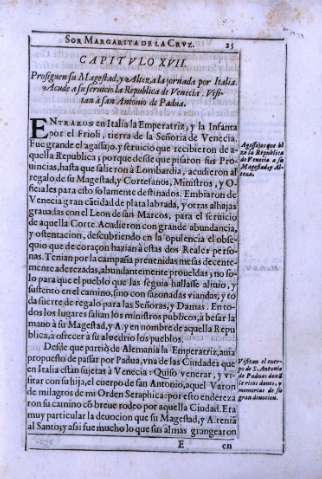 SOR MARGARITA DE LA CRVZ. 25
CAPITVLO XVII.
Prosiguen su Magestad, y Alteza la jornada por Italia.
Acude a su seruicio la Republica de Venecia. Visi-
tan à san Antonio de Padua.
ENTRARON en Italia la Emperatriz, y la Infanta
por el Frioli, tierra de la Señoria de Venecia.
Fue grande el agasajo, y seruicio que recibieron de a-
quella Republica; porque desde que pisaron sus Pro-
uincias, hasta que salieron à Lombardia, acudieron al
regalo de su Magestad, y Cortesanos, Ministros, y O-
ficiales para esto solamente destinados. Embiaron de
Venecia gran cãtidad de plata labrada, y otras alhajas
grauadas con el Leon de san Marcos, para el seruicio
de aquella Corte. Acudieron con grande abundancia,
y ostentacion, descubriendo en la opulencia el obse-
quio que de coraçon hazian à estas dos Reales perso-
nas. Tenian por la campaña preuenidas mesas decente-
mente adereçadas, abundantemente proueidas, y no so-
lo para que el pueblo que las seguia hallasse aliuio, y
sustento en el camino, sino con sazonadas viandas, y to-
da suerte de regalo para las Señoras, y Damas. En to-
dos los lugares salian los ministros publicos, à besar la
mano à su Magestad, y A. y en nombre de aquella Repu-
blica, à ofrecer à su aluedrio los pueblos.
Desde que partiò de Alemania la Emperatriz, auia
propuesto de passar por Padua, vna de las Ciudades que
en Italia estàn sujetas à Venecia: Quiso venerar, y vi-
sitar con su hija, el cuerpo de san Antonio, aquel Varon
de milagros de mi Orden Seraphica: por esto endereza
ron su camino cõ breue rodeo por aquella Ciudad. Era
muy particular la deuocion que su Magestad, y A. tenia
al Santo; y assi fue mucho lo que sus almas grangearon
E en
Agasajos que hi
zo la Republica
de Venecia a su
Magestad, y Al-
teza.
Visitan el cuer-
po de S. Antonio
de Padua: dura
su gran deuocion.